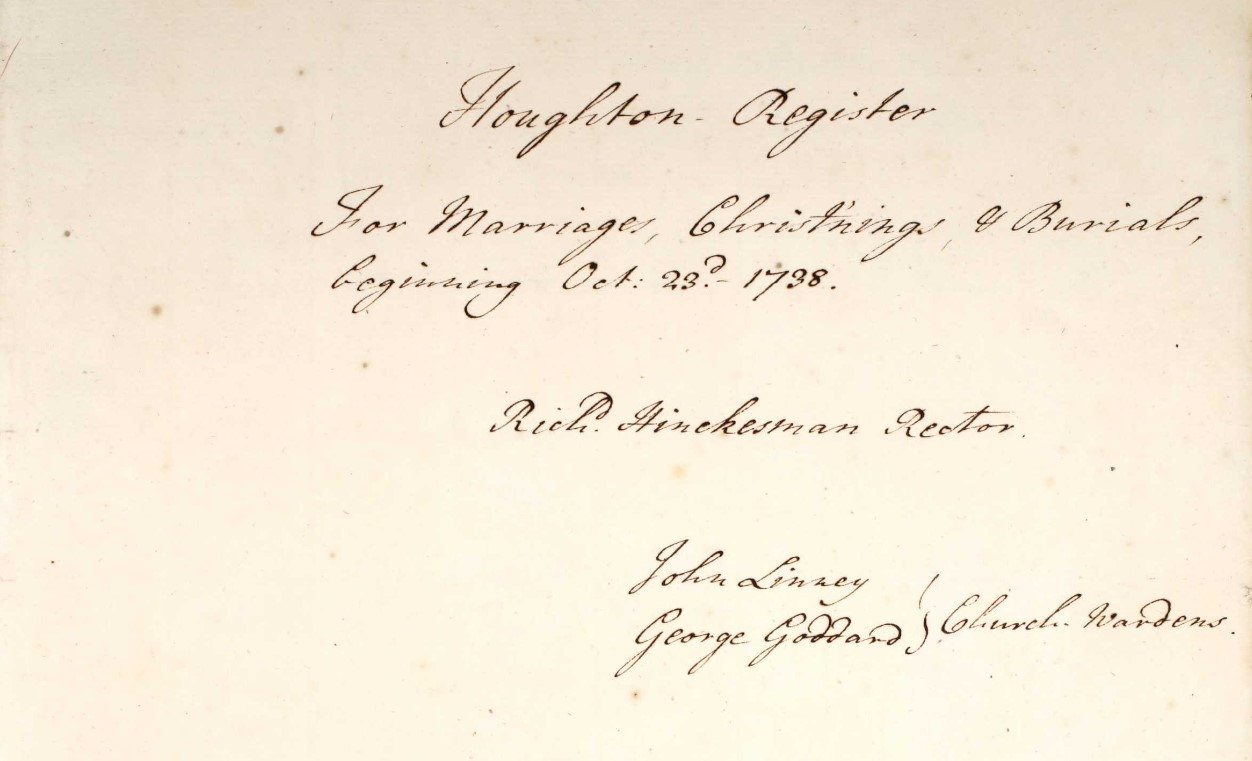 Houghton - Register
For Marriages, Christ'nings, & Burials,
beginning Oct: 23d. - 1738.
Richd. Hinckesman Rector.
John Linney
George Goddard } Church-Wardens.